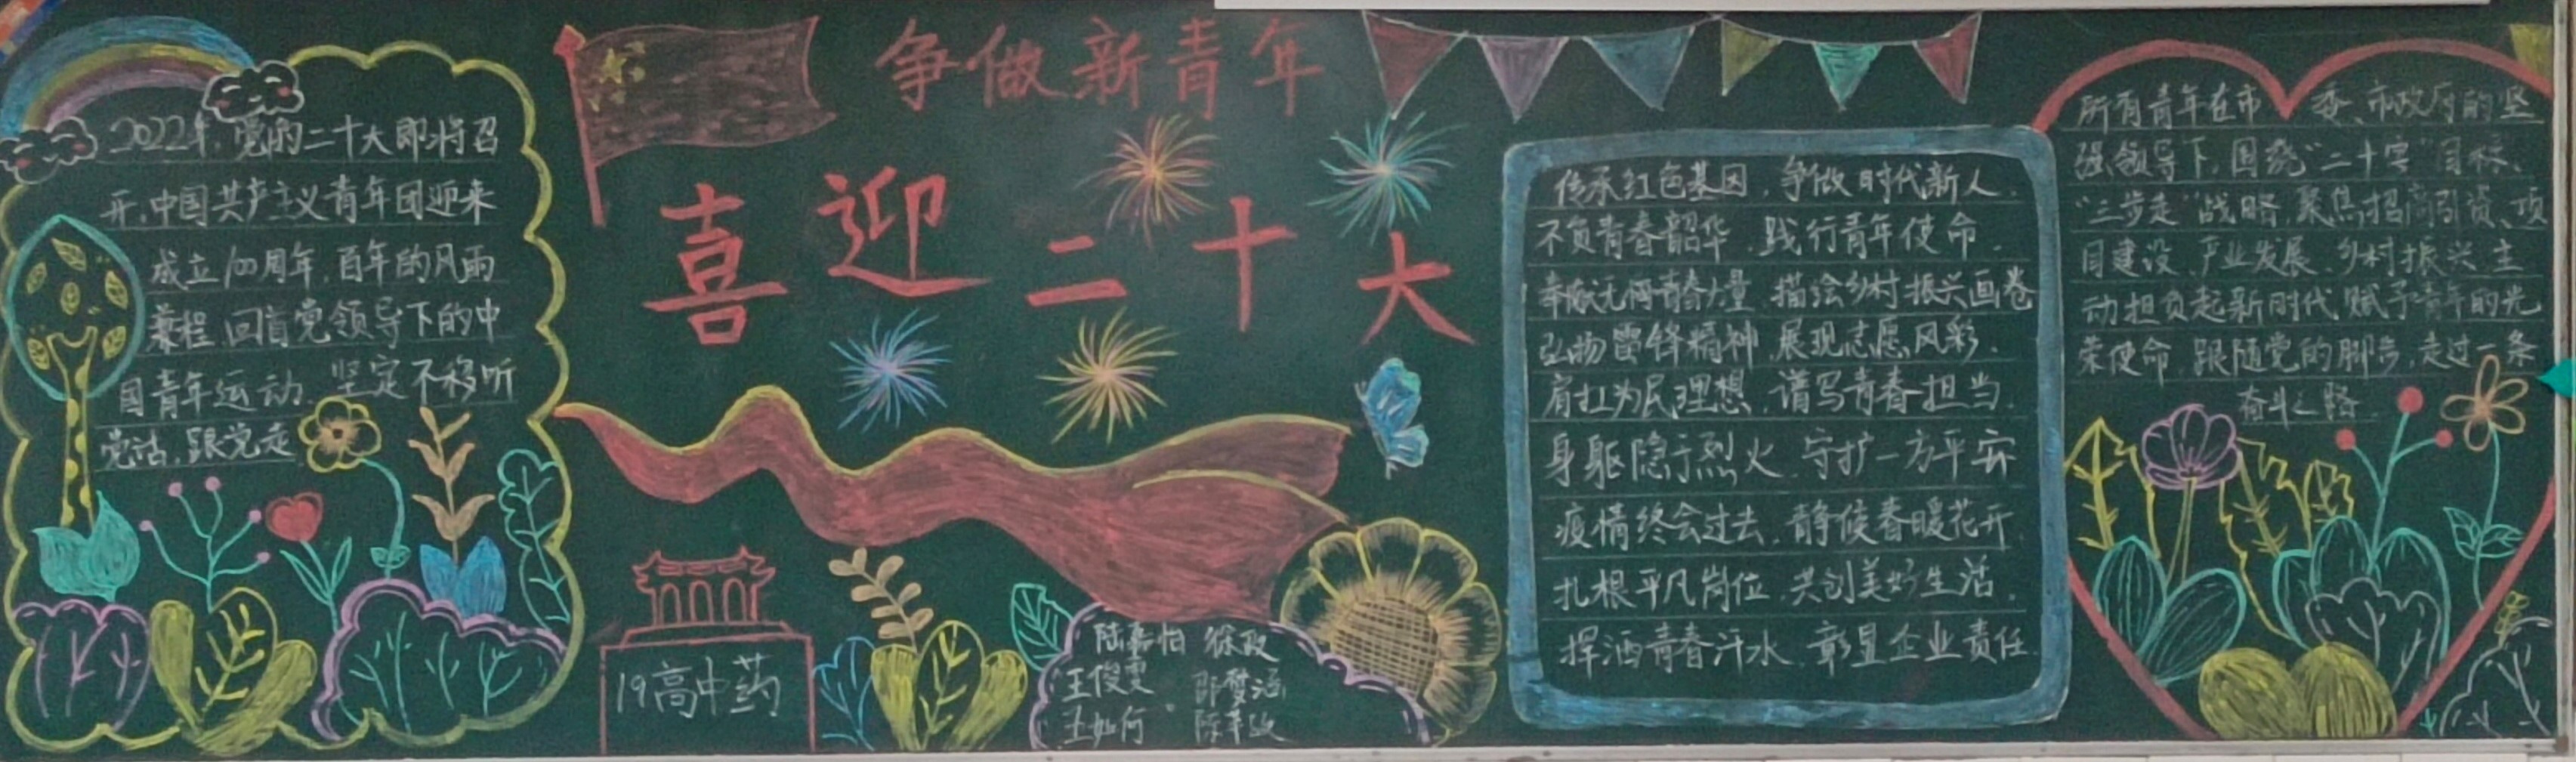 争做新青年
喜迎二十大
2022年，党的二十大即将召
开，中国共产主义青年团迎来
成立100周年，百年的风雨
兼程，回首党领导下的中
国青年运动，坚定不移听
党话，跟党走
19高中药
陆嘉怡 徐政
王俊雯 邵梦涵
王如何
传承红色基因，争做时代新人，
不负青春韶华，践行青年使命，
奉献无悔青春力量，描绘乡村振兴画卷
弘扬雷锋精神，展现志愿风彩，
肩扛为民理想，谱写青春担当，
身躯隐于烈火，守护一方平安
疫情终会过去，静候春暖花开，
扎根平凡岗位，共创美好生活，
挥洒青春汗水，彰显企业责任
所有青年在市 委、市政府的坚
强领导下，围绕“二十字”目标、
“三步走”战略，聚焦招商引资、项
目建设、产业发展、乡村振兴，主
动担负起新时代赋予青年的光
荣使命，跟随党的脚步，走过一条
奋斗之路